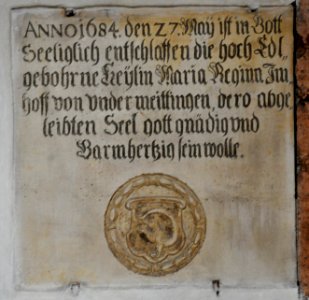 ANNO 1684. den 27. Maÿ ist in Gott
Seeliglich entschlaffen die hoch Edl⸗
gebohrne Freÿlin Maria Regina Im
hoff von undermeittingen, dero abge
leibten Seel gott gnädig vnd
Barmhertzig sein wolle.